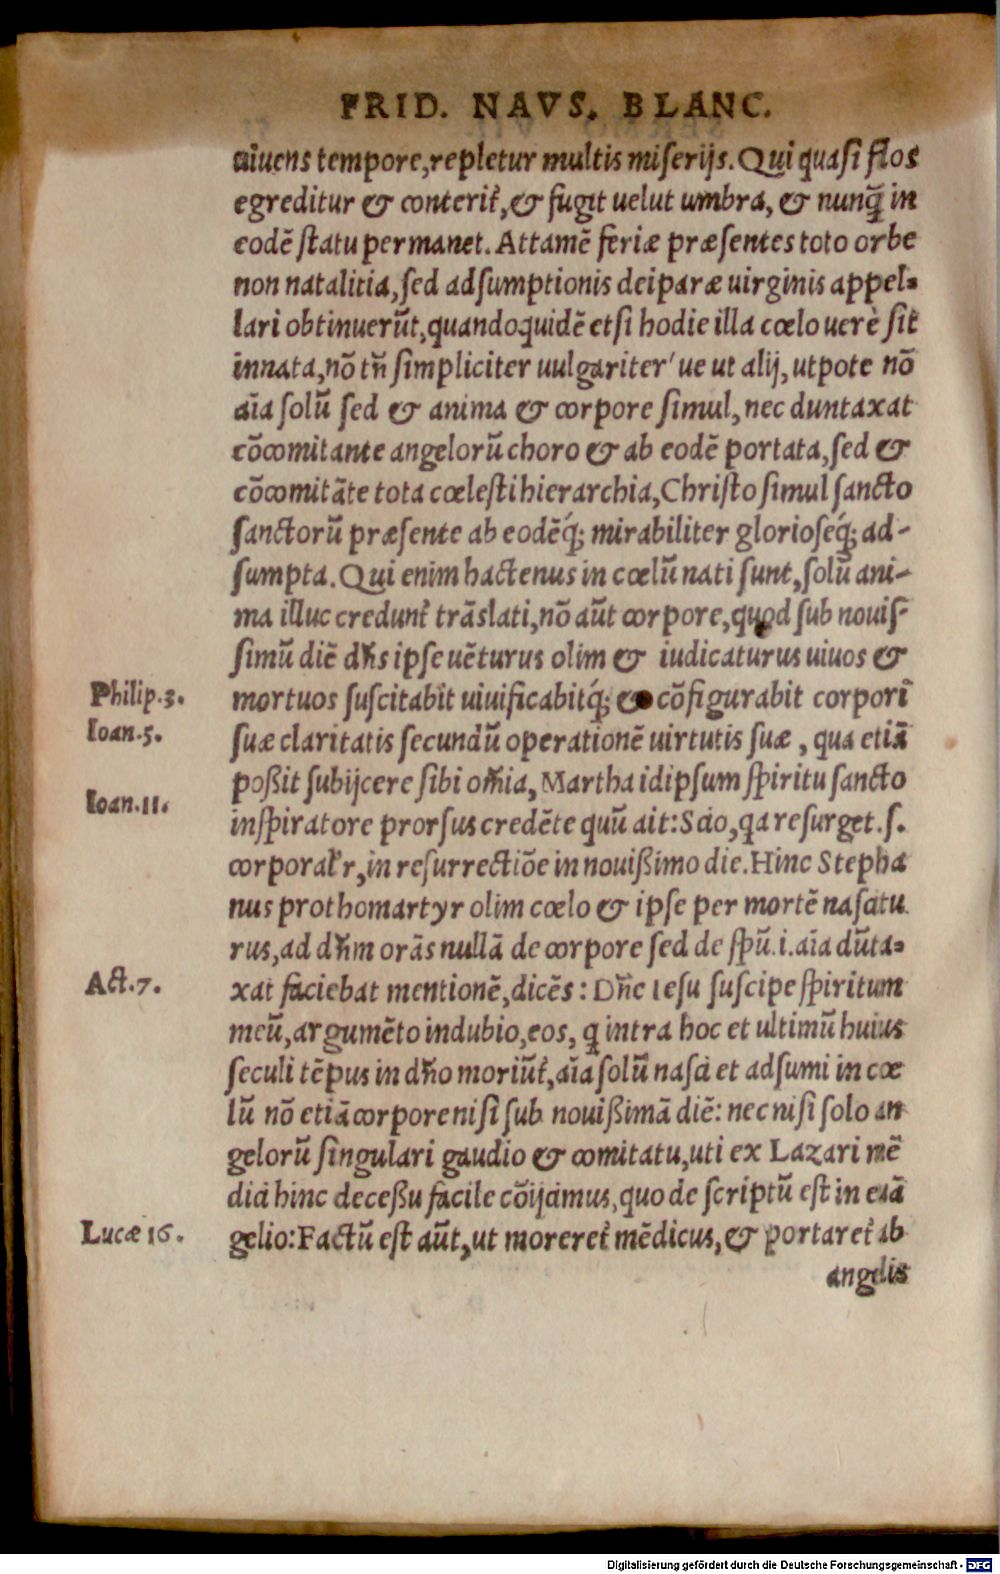 FRID. NAVS. BLANC.
uiuens tempore, repletur multis miserijs. Qui quasi flos
egreditur & conterit᷑, & fugit uelut umbra, & nunq̃ in
eodẽ statu permanet. Attamẽ feriæ præsentes toto orbe
non natalitia, sed adsumptionis deiparæ uirginis appel-
lari obtinuerũt, quandoquidẽ etsi hodie illa cœlo uerè sit
innata, nõ tñ simpliciter uulgariter´ue ut alij, utpote nõ
aĩa solũ sed & anima & corpore simul, nec duntaxat
cõcomitante angelorũ choro & ab eodẽ portata, sed &
cõcomitãte tota cœlesti hierarchia, Christo simul sancto
sanctorũ præsente ab eodẽq́; mirabiliter glorioseq́; ad-
sumpta. Qui enim hactenus in cœlũ nati sunt, solũ ani-
ma illuc credunt᷑ trãslati, nõ aũt corpore, quod sub nouis-
simũ diẽ dñs ipse uẽturus olim & iudicaturus uiuos &
Philip.3. mortuos suscitabit uiuificabitq́; & cõfigurabit corpori
Ioan.5. suæ claritatis secundũ operationẽ uirtutis suæ, qua etiã
poßit subijcere sibi om̃ia, Martha idipsum spiritu sancto
Ioan.11. inspiratore prorsus credẽte quũ ait: Scio, qa resurget .s.
corporal᷑r, in resurrectiõe in nouißimo die. Hinc Stepha
nus prothomartyr olim cœlo & ipse per mortẽ nascitu
rus, ad dñm orãs nullã de corpore sed de spũ .i. aĩa dũta-
Act.7. xat faciebat mentionẽ, dicẽs: Dñe Iesu suscipe spiritum
meũ, argumẽto indubio, eos, q̃ intra hoc et ultimũ huius
seculi tẽpus in dño moriũt᷑, aĩa solũ nasci et adsumi in cœ
lũ nõ etiã corpore nisi sub nouißimã diẽ: nec nisi solo an
gelorũ singulari gaudio & comitatu, uti ex Lazari mẽ
dici hinc deceßu facile cõijcimus, quo de scriptũ est in euã
Lucæ 16. gelio: Factũ est aũt, ut moreret᷑ mẽdicus, & portaret᷑ ab
angelis
Digitalisierung gefördert durch die Deutsche Forschungsgemeinschaft - DFG